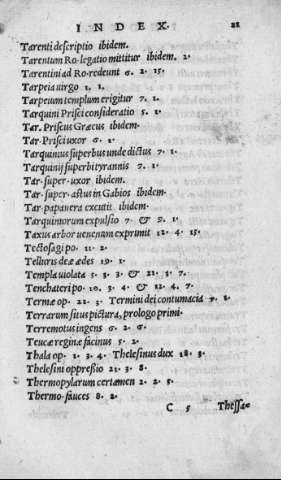 INDEX. 21
Tarenti descriptio ibidem.
Tarentum Ro·legatio mittitur ibidem. 2·
Tarentini ad Ro·redeunt 6· 2· 15·
Tarpeia uirgo 1· 1·
Tarpeium templum erigitur 7· 1·
Tarquini Prisci consideratio 5· 1·
Tar. Priscus Græcus ibidem.
Tar·Prisci uxor 6· 1·
Tarquinus superbus unde dictus 7· 1·
Tarquinij superbi tyrannis 7· 1·
Tar·super·uxor ibidem.
Tar·super·astus in Gabios ibidem.
Tar·papauera excutit ibidem.
Tarquiniorum expulsio 7· & 9· 1·
Taxus arbor uenenum exprimit 12· 4· 15·
Tectosagi po. 11· 2·
Telluris deæ ædes 19· 1·
Templa uiolata 5· 3· 3· & 21· 3· 7·
Tenchateri po· 10. 3· 4· & 12· 4· 7·
Termæ op· 22· 3· Termini dei contumacia 7· 1·
Terrarum situs pictura, prologo primi·
Terremotus ingens 6· 2· 6·
Teucæ reginæ facinus 5· 2·
Thala op· 1· 3· 4· Thelesinus dux 18· 3·
Thelesini oppressio 21· 3· 8·
Thermopylarum certamen 2· 2· 5·
Thermo·fauces 8· 2·
C 5 Thessa=